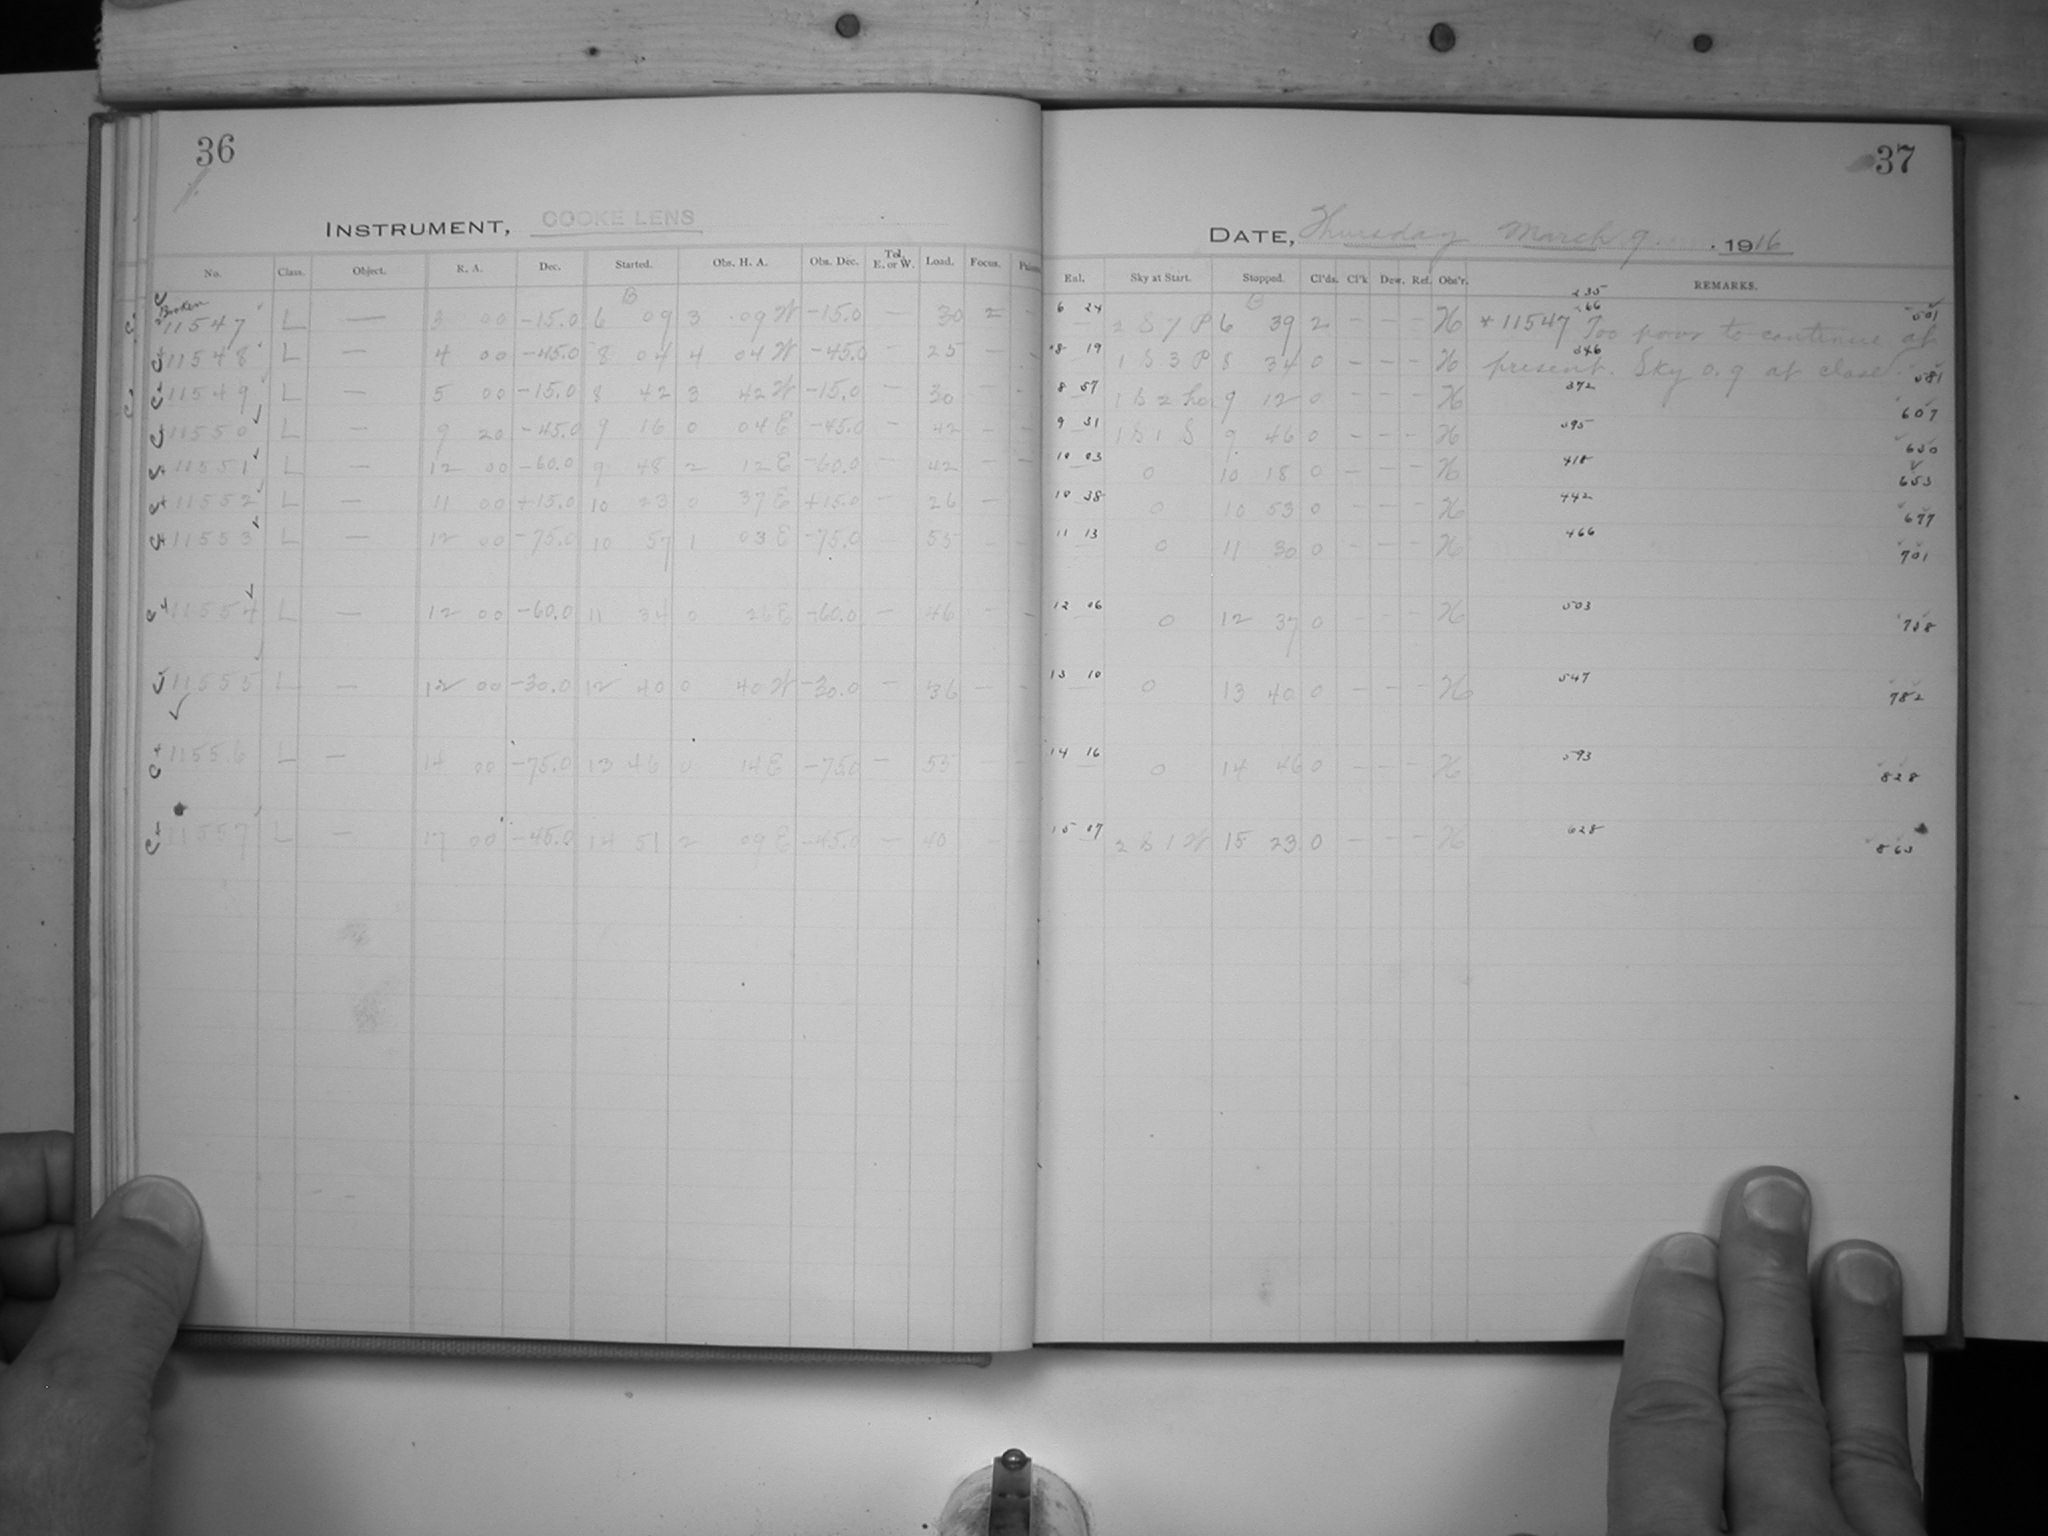 36
INSTRUMENT, COOKE LENS
No. Class. Object. R. A. Dec. Started. Obs. H. A. Obs. Dec. Tel. E. or W. Load. Focus.
Broken
11547 L — 3 00 -15.0 6 09 3 09 W -15.0 — 30 2 -
11548 L — 4 00 -45.0 8 04 4 04 W -45.0 — 25 — -
11549 L — 5 00 -15.0 8 42 3 42 W -15.0 — 30 — -
11550 L — 9 20 -45.0 9 16 0 04 E -45.0 — 42 — -
11551 L — 12 00 -60.0 9 48 2 12 E -60.0 — 42 — -
11552 L — 11 00 +15.0 10 23 0 37 E +15.0 — 26 —
11553 L — 12 00 -75.0 10 57 1 03 E -75.0 55 — -
11554 L — 12 00 -60.0 11 34 0 26 E -60.0 — 46 — -
11555 L — 12 00 -30.0 12 40 0 40 W -30.0 — 36 — -
11556 L — 14 00 -75.0 13 46 0 14 E -75.0 — 55 — -
11557 L — 17 00 -45.0 14 51 2 09 E -45.0 — 40
37
DATE, Thursday March 9. . 1916
Eal. Sky at Start. Stopped. Cl'ds. Cl'k Dew. Ref. Obs'r. REMARKS.
235
6 24 2 S 7 P 6 39 2 — — — H 266 501
* 11547 Too poor to continue at
8 19 1 S 3 P 8 34 0 — — — H 346 581
present. Sky 0.9 at close.
8 57 9 12 0 — — — H 372 607
9 31 1 S 1 S 9 46 0 — — — H 395 630
10 03 0 10 18 0 — — — H 418 653
10 38 0 10 53 0 — — — H 442 677
11 13 0 11 30 0 — — — H 466 701
12 06 0 12 37 0 — — — H 503 738
13 10 0 13 40 0 — — — H 547 782
14 16 0 14 46 0 — — — H 593 828
15 07 2 S 1 W 15 23 0 — — — H 628 863